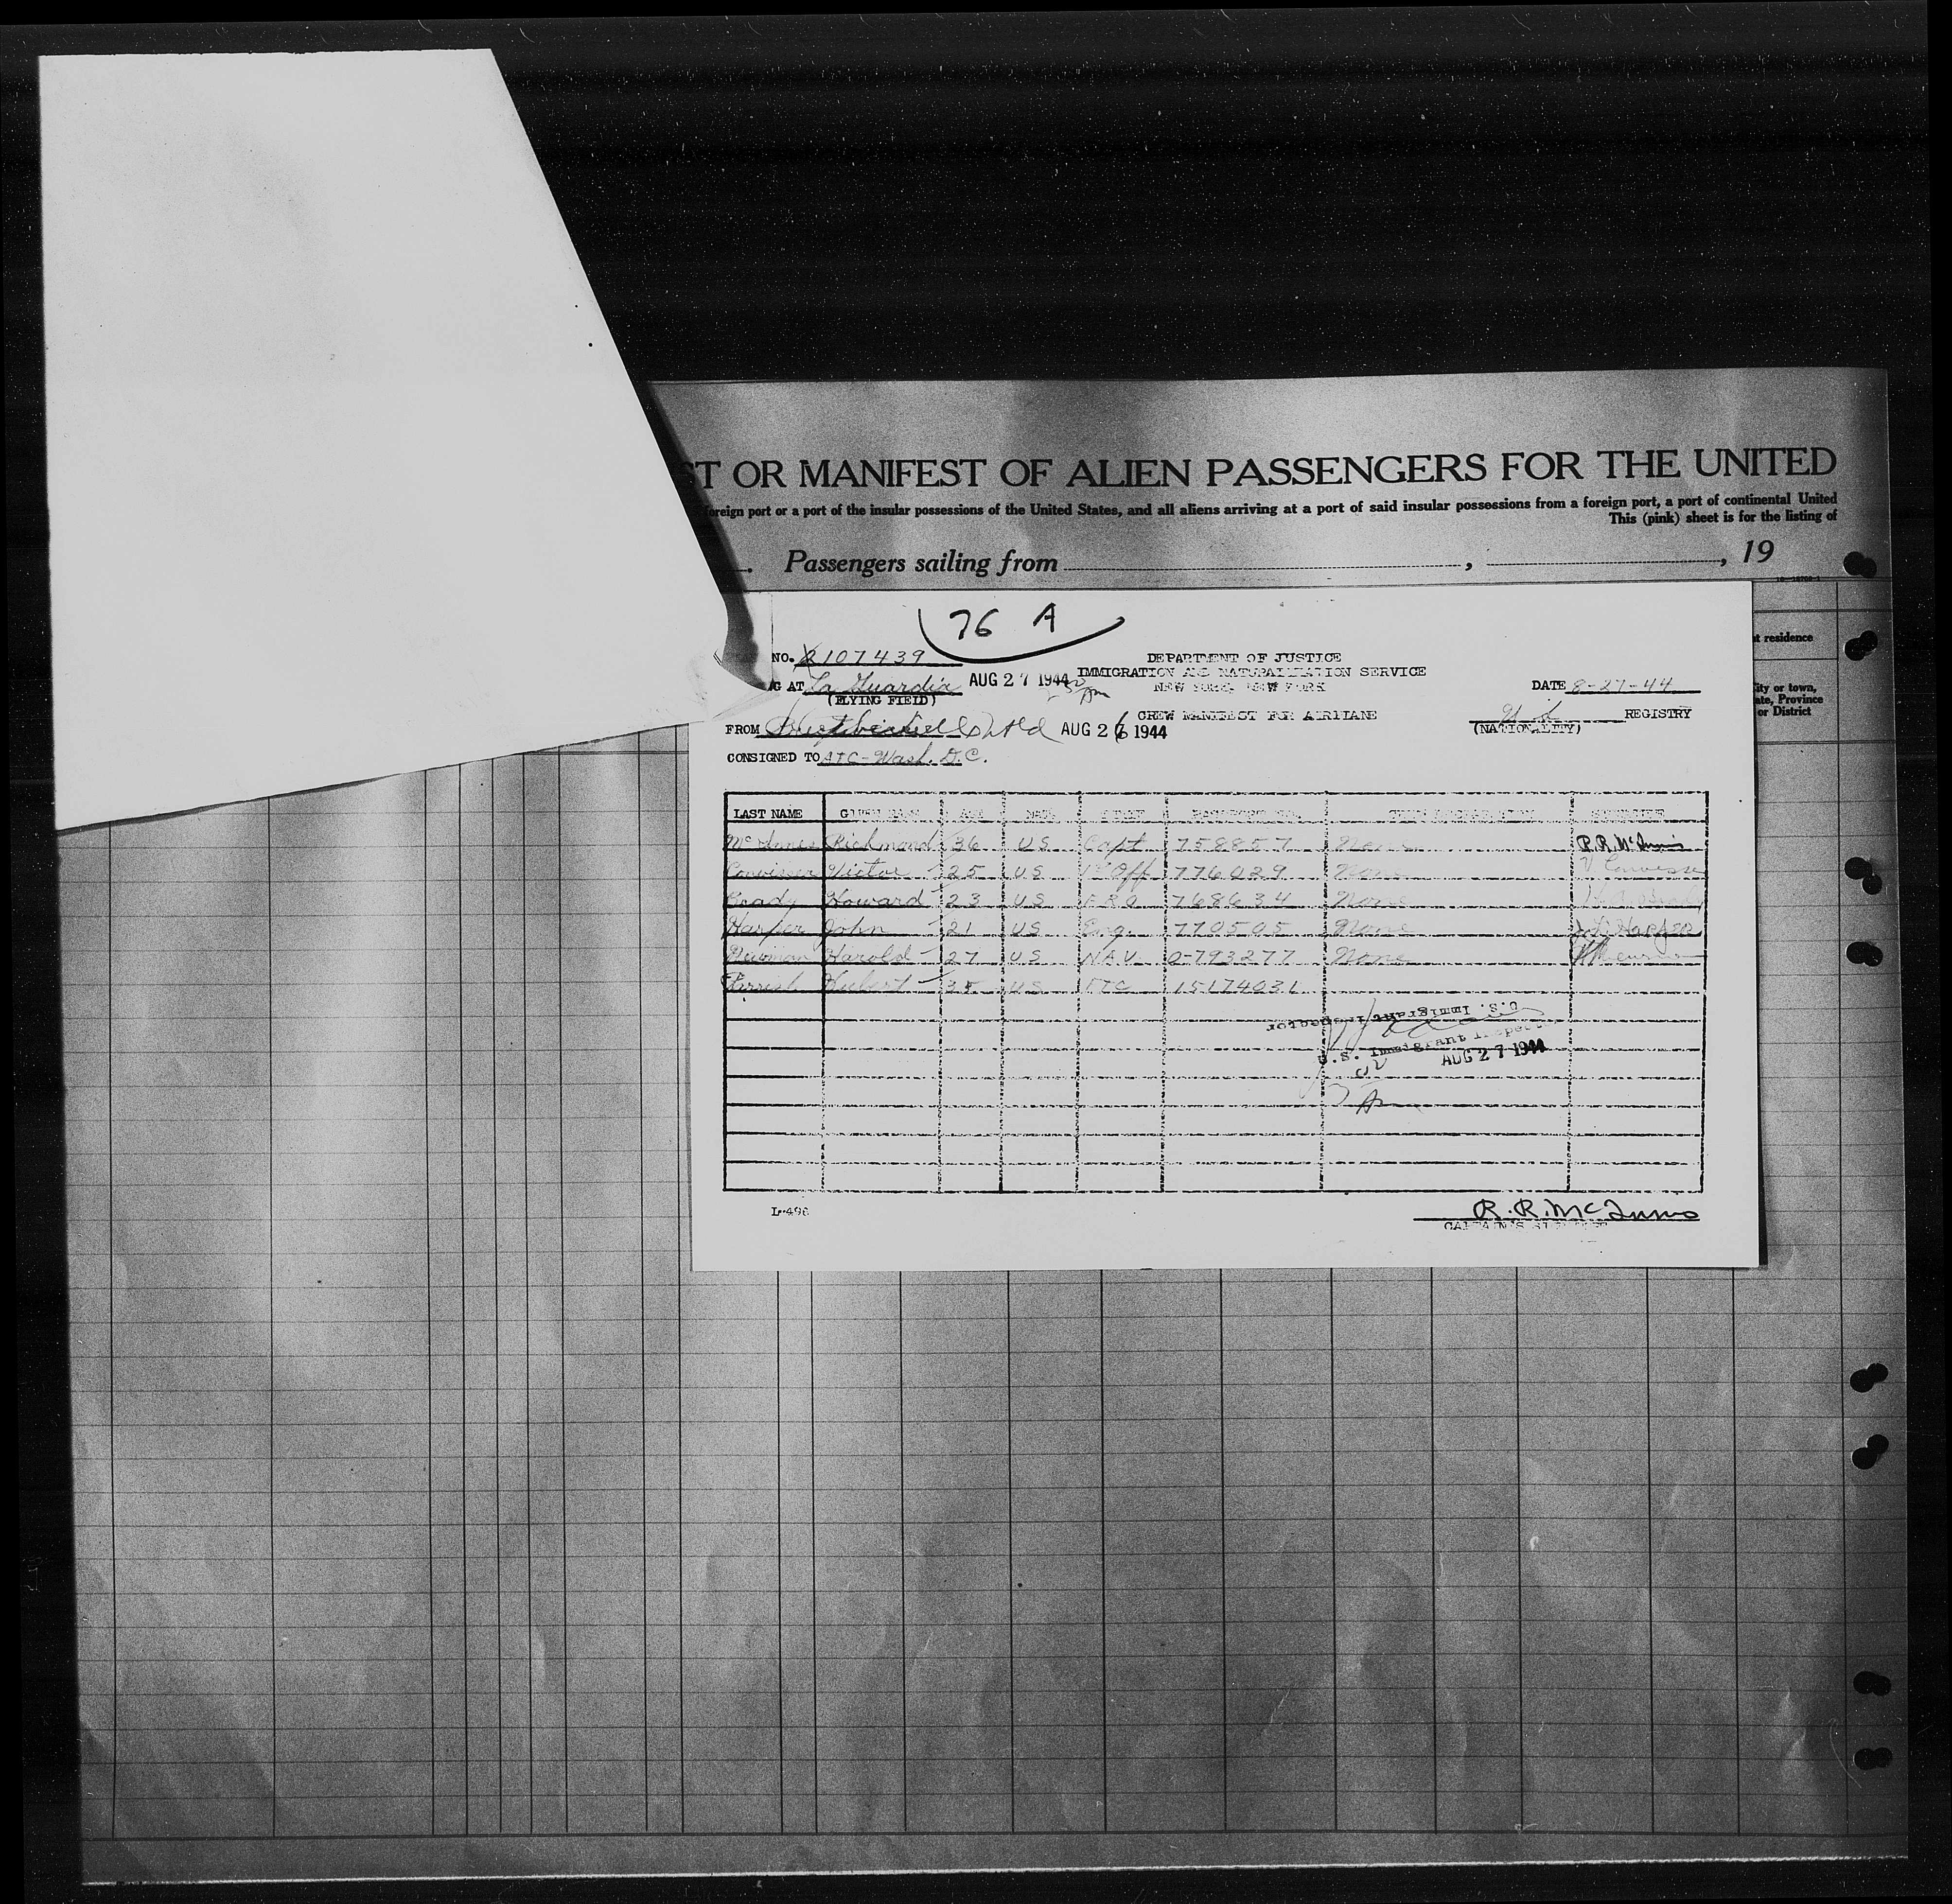 ST OR MANIFEST OF ALIEN PASSENGERS FOR THE UNITED
foreign port or a port of the insular possessions of the United States, and all aliens arriving at a port of said insular possessions from a foreign port, a port of continental United
This (pink) sheet is for the listing of
Passengers sailing from , , 19
76 A
NO. 2107439 DEPARTMENT OF JUSTICE
G AT La Guardia AUG 27 1944 IMMIGRATION AND NATURALIZATION SERVICE
(FLYING FIELD) NEW YORK, NEW YORK DATE 8-27-44
FROM Nfld AUG 26 1944 CREW MANIFEST FOR AIRPLANE REGISTRY
(NATIONALITY)
CONSIGNED TO ATC-Wash. D.C.
t residence
City or town,
ate, Province
or District
LAST NAME GIVEN NAME AGE
Richmond 36 US Capt 758857 None R.R. McInnis
Victor 25 US 1st Off 776029 None
Brady Howard 23 US F.R.O. 768634 None
Harper John 21 US Eng. 770505 None Harper
Newman Harold 27 US NAV 0-793277 None
Parrish Hubert 35 US 15174031
U.S. Immigrant Inspector
U.S. Immigrant Inspector
AUG 27 1944
L-496 R.R. McInnis
CAPTAIN'S SIGNATURE